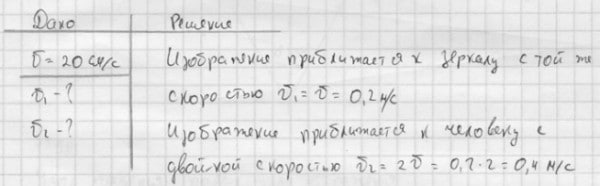 Дано Решение
υ = 20 см/с Изображение приближается к зеркалу с той же
υ₁ - ? скоростью υ₁ = υ = 0,2 м/с
υ₂ - ? Изображение приближается к человеку с
двойной скоростью υ₂ = 2υ = 0,2 · 2 = 0,4 м/с